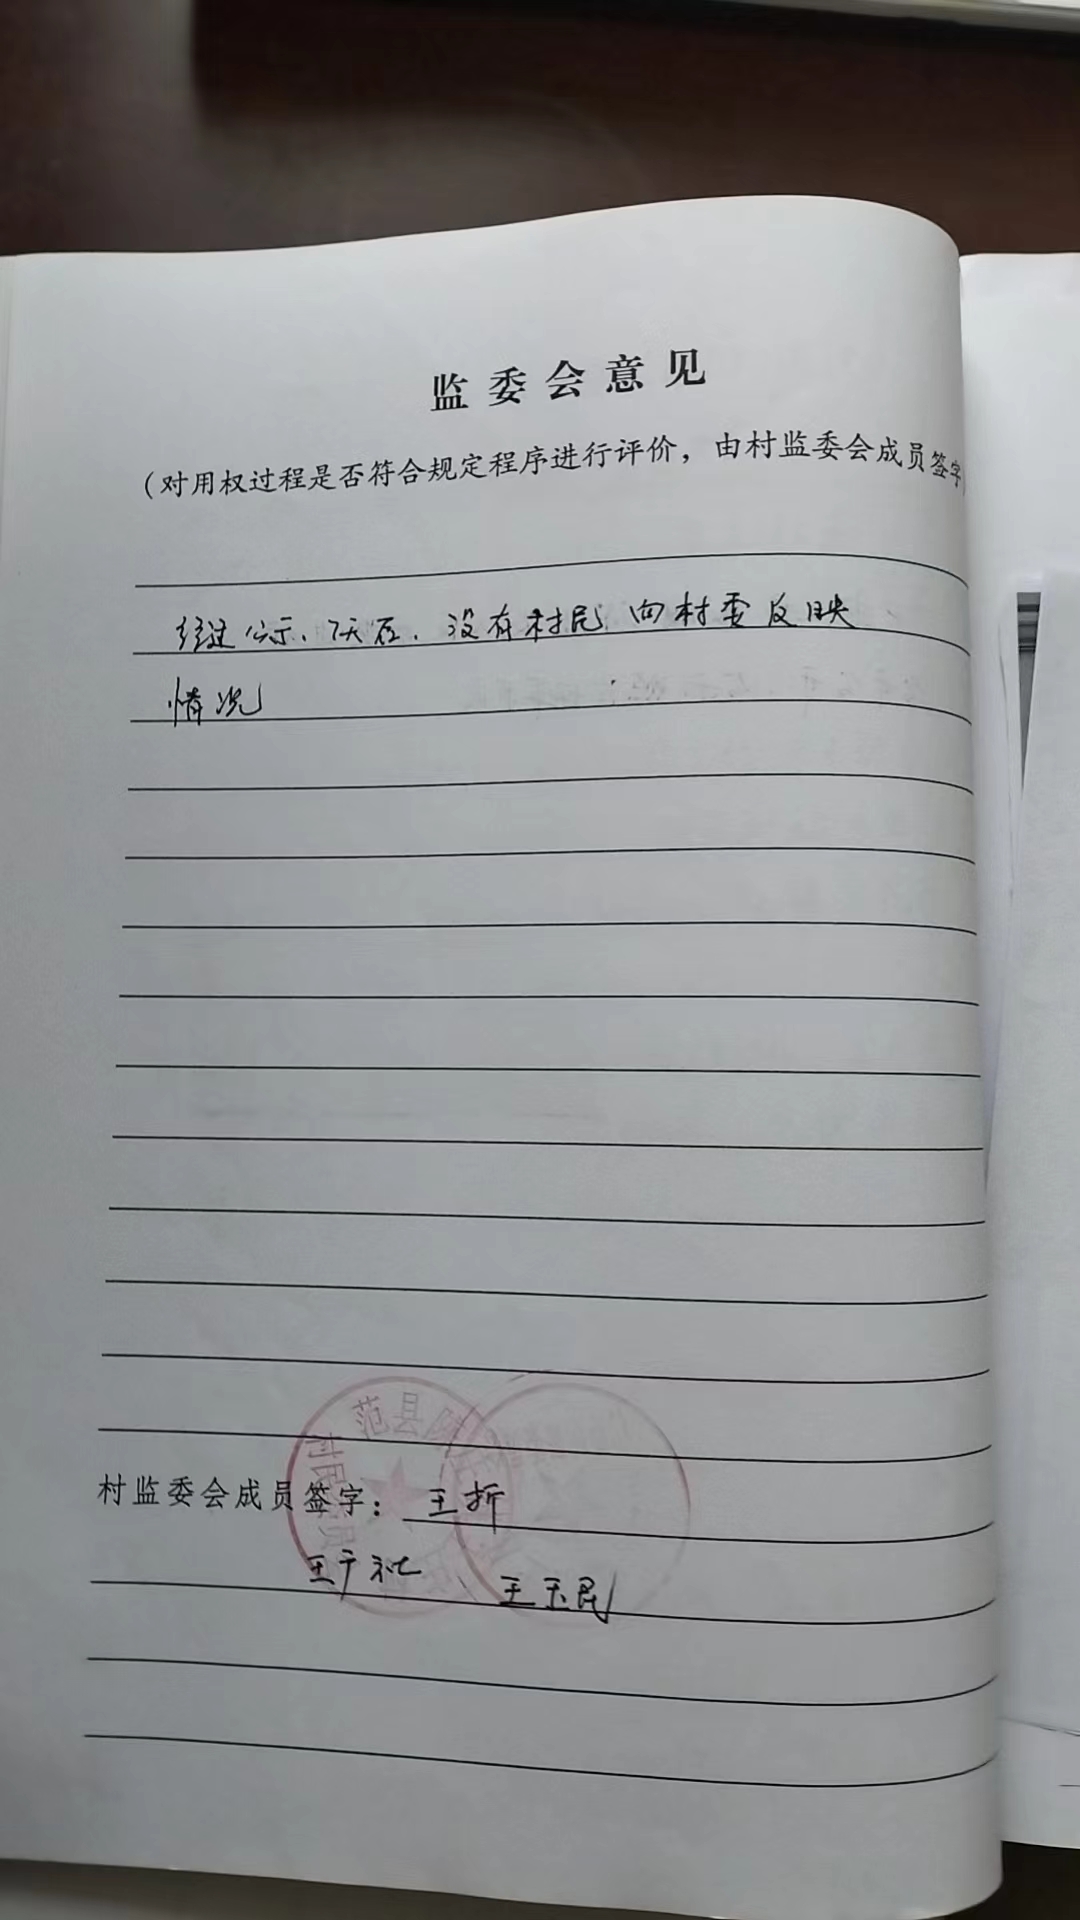 监委会意见
（对用权过程是否符合规定程序进行评价，由村监委会成员签字
经过公示、7天后、没有村民向村委反映
情况
范县
村民委员
村监委会成员签字：王折
王于礼 王玉民